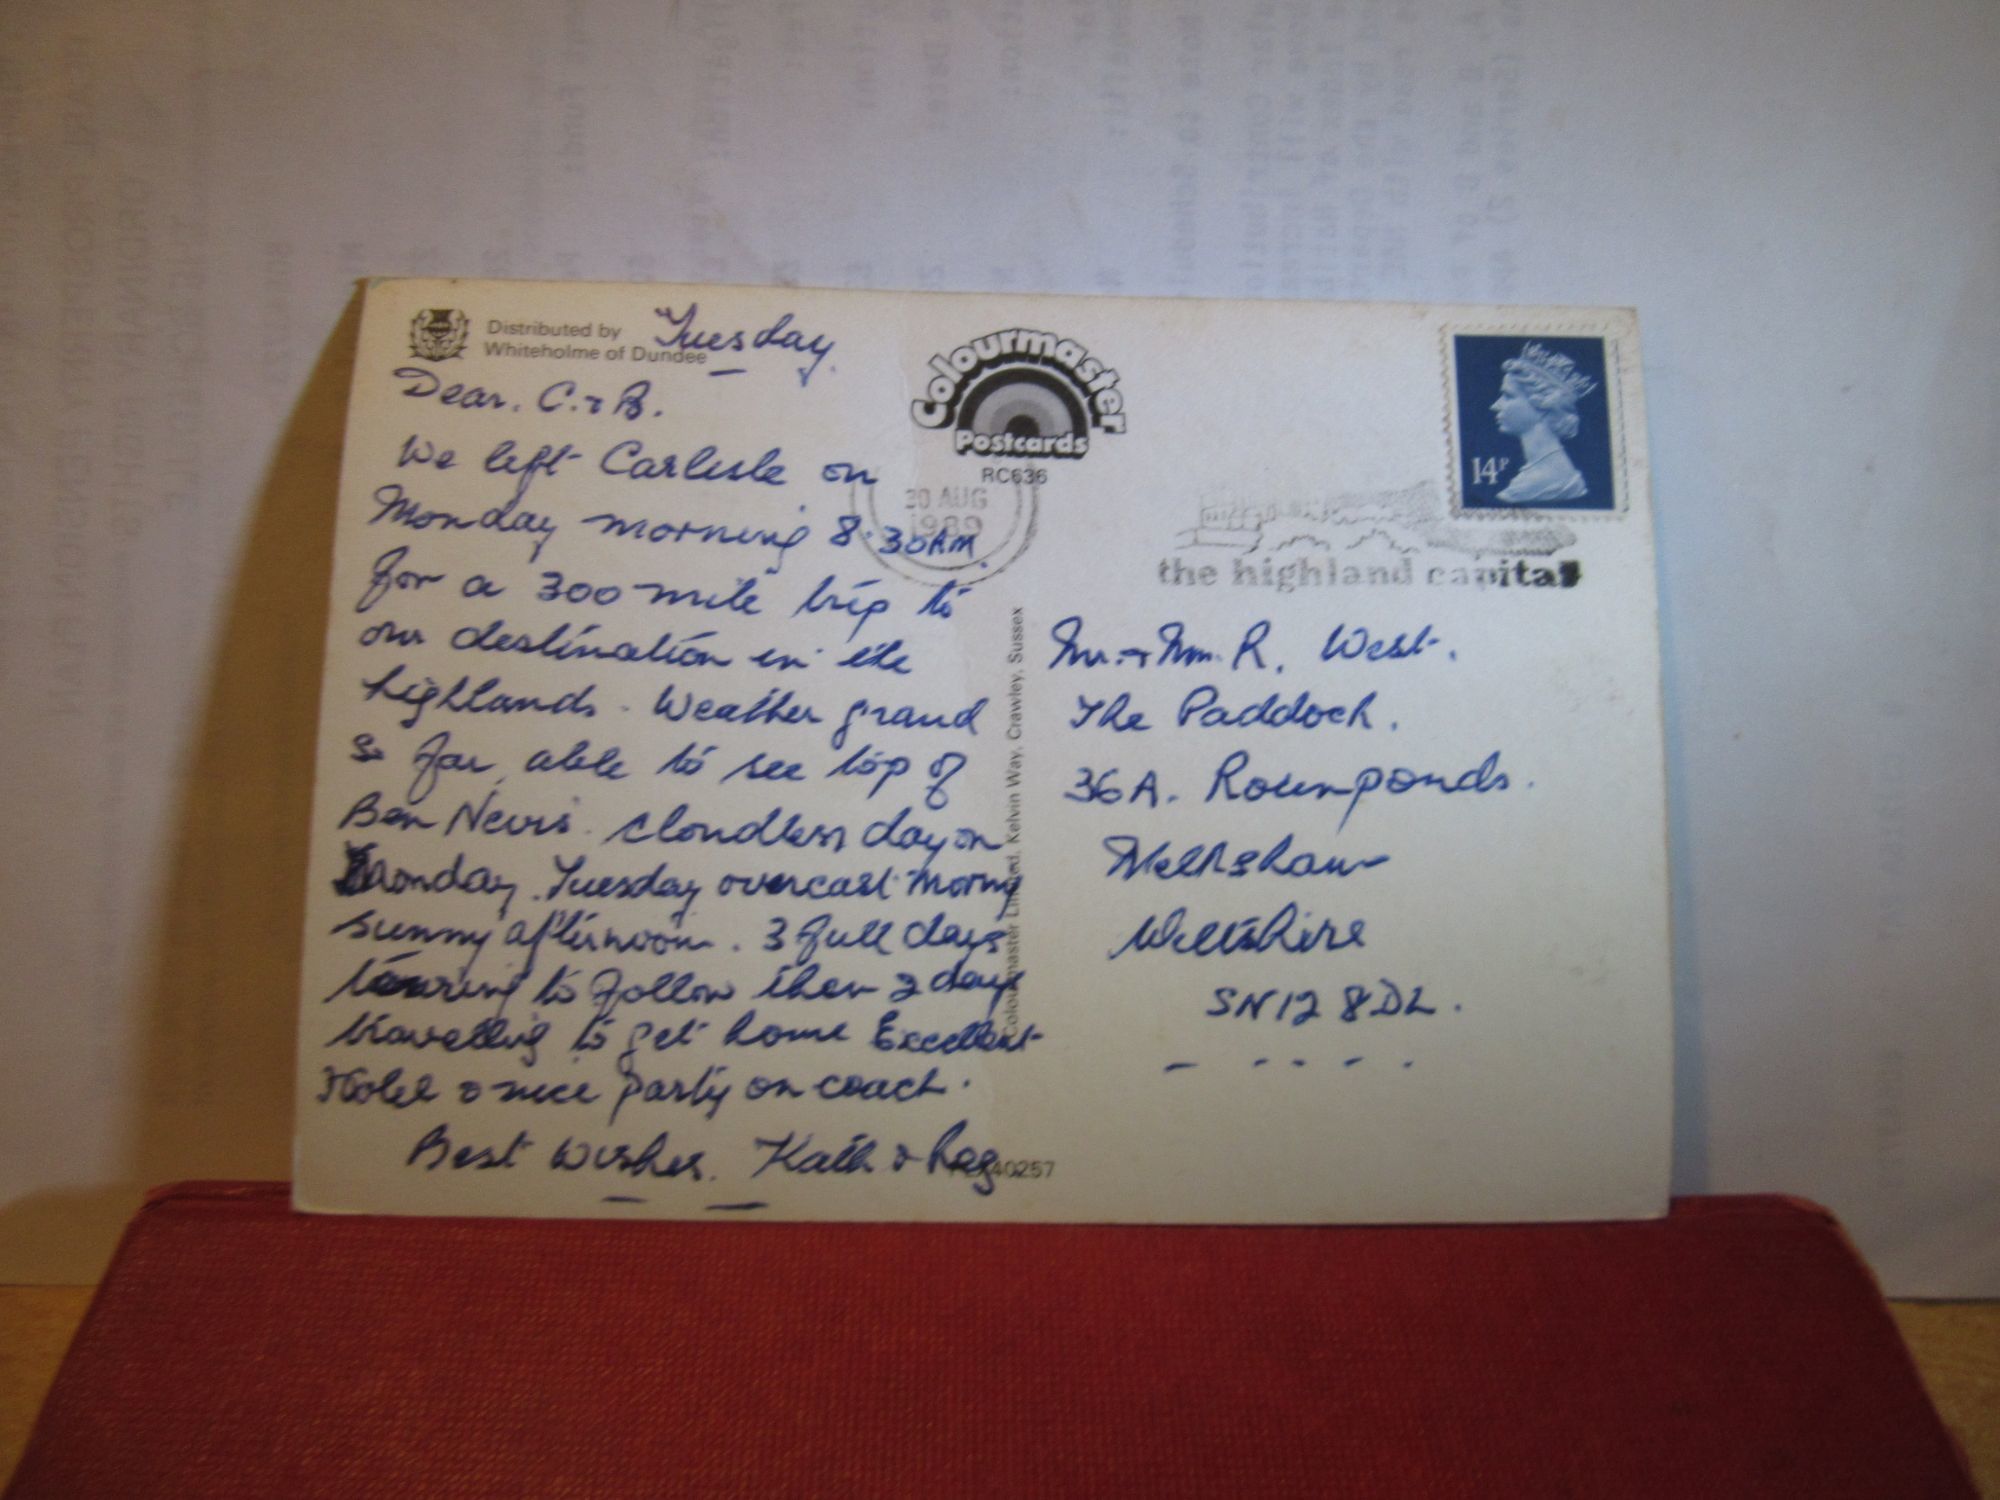 Distributed by
Whiteholme of Dundee
Tuesday.
Dear. C. & B.
We left Carlisle on
Monday morning 8.30AM.
for a 300 mile trip to
our destination in the
highlands. Weather grand
so far, able to see top of
Ben Nevis. cloudless day on
Monday. Tuesday overcast morng
sunny afternoon. 3 full days
touring to follow then 2 days
travelling to get home Excellent
Hotel & nice party on coach.
Best Wishes. Kath & Reg
Colourmaster
Postcards
RC636
30 AUG
1989
14P
the highland capital
Colourmaster Limited, Kelvin Way, Crawley, Sussex
Mr. & Mrs. R. West.
The Paddock.
36A. Rounponds.
Melksham
Wiltshire
SN12 8DL.
40257